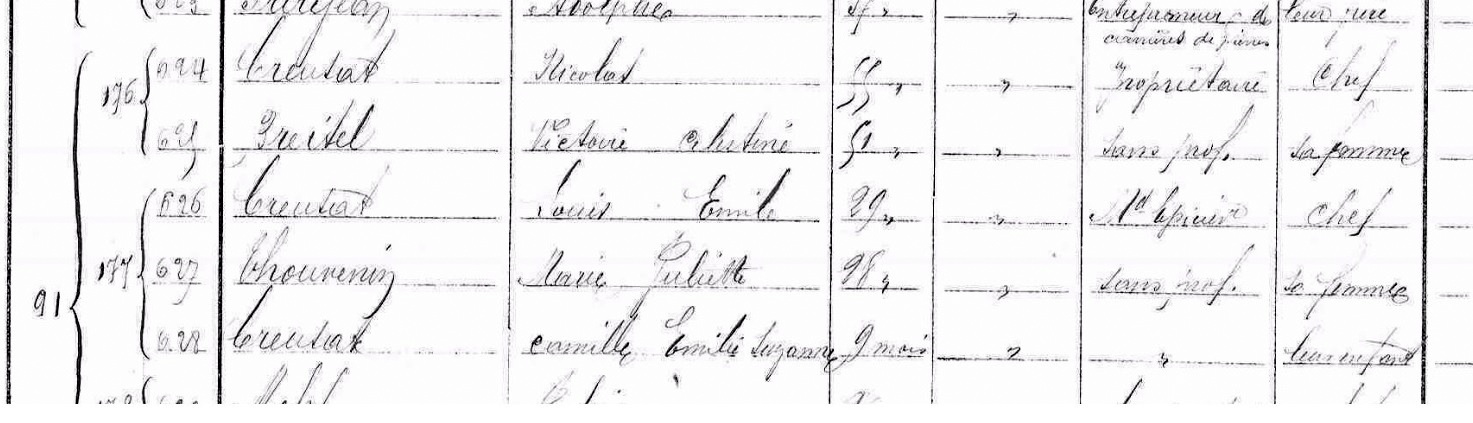 Adolphe " Entrepreneur de leur père
carrières de pierres
176 624 Creusat Nicolas 55 " " Propriétaire Chef
625 Preitel Victoire Celestine 51 " " sans prof. sa femme
626 Creusat Louis Emile 29 " " Md Epicier Chef
177 627 Thouvenin Marie Juliette 28 " " sans prof. sa femme
91
628 Creusat Camille Emilie Suzanne 9 mois " " leur enfant